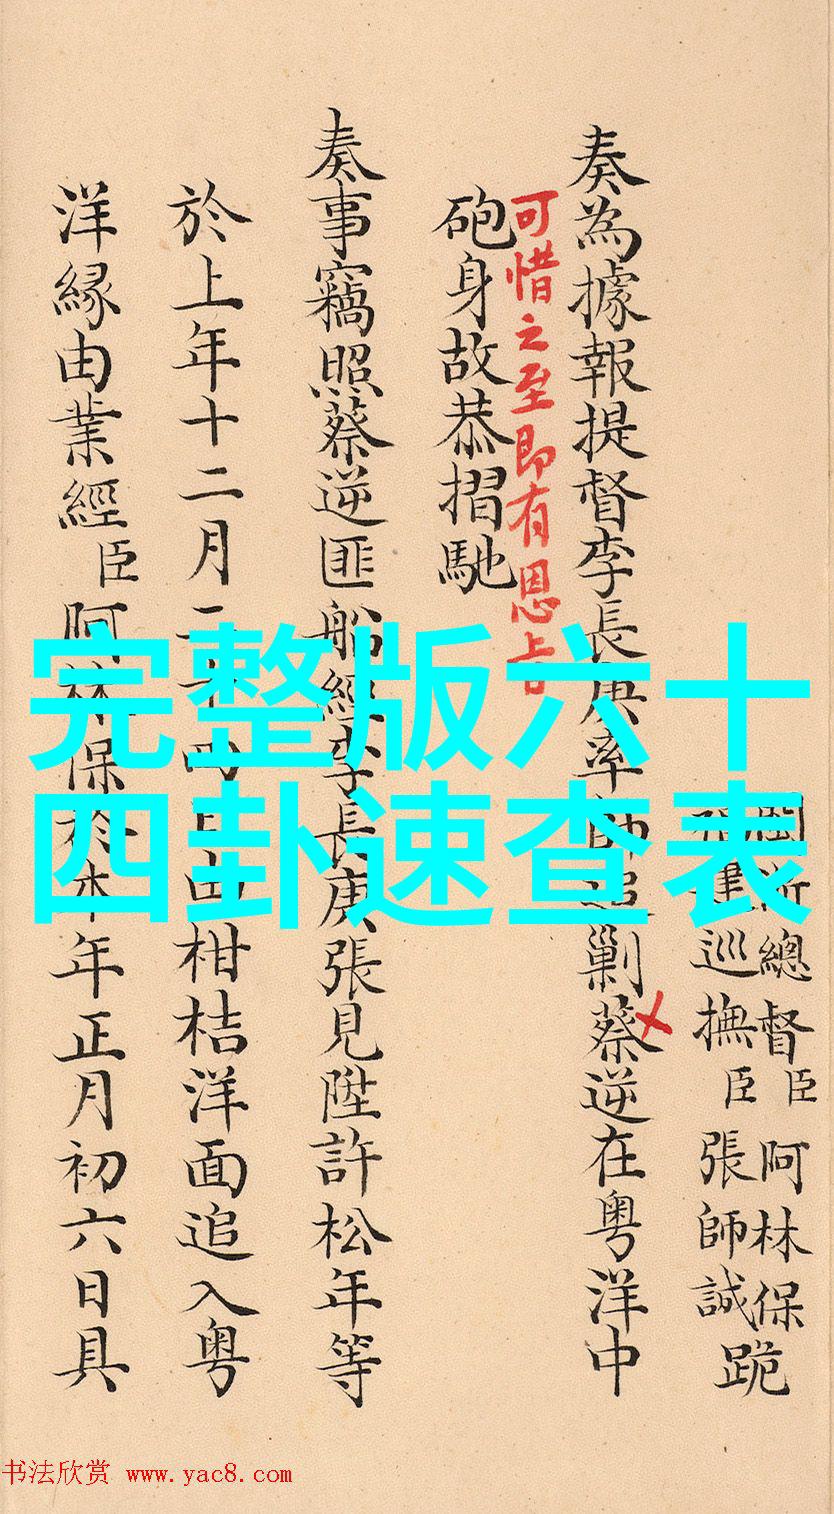 閩浙總督臣阿林保跪
福建巡撫臣張師誠
奏為據報提督李長庚率師追剿蔡逆在粤洋中
可惜之至即有恩旨
砲身故恭摺馳
奏事竊照蔡逆匪船經李長庚張見陞許松年等
於上年十二月二十四日由柑桔洋面追入粤
洋緣由業經臣阿林保於本年正月初六日具
完整版六十
四卦速查表
书法欣赏 www.yac8.com